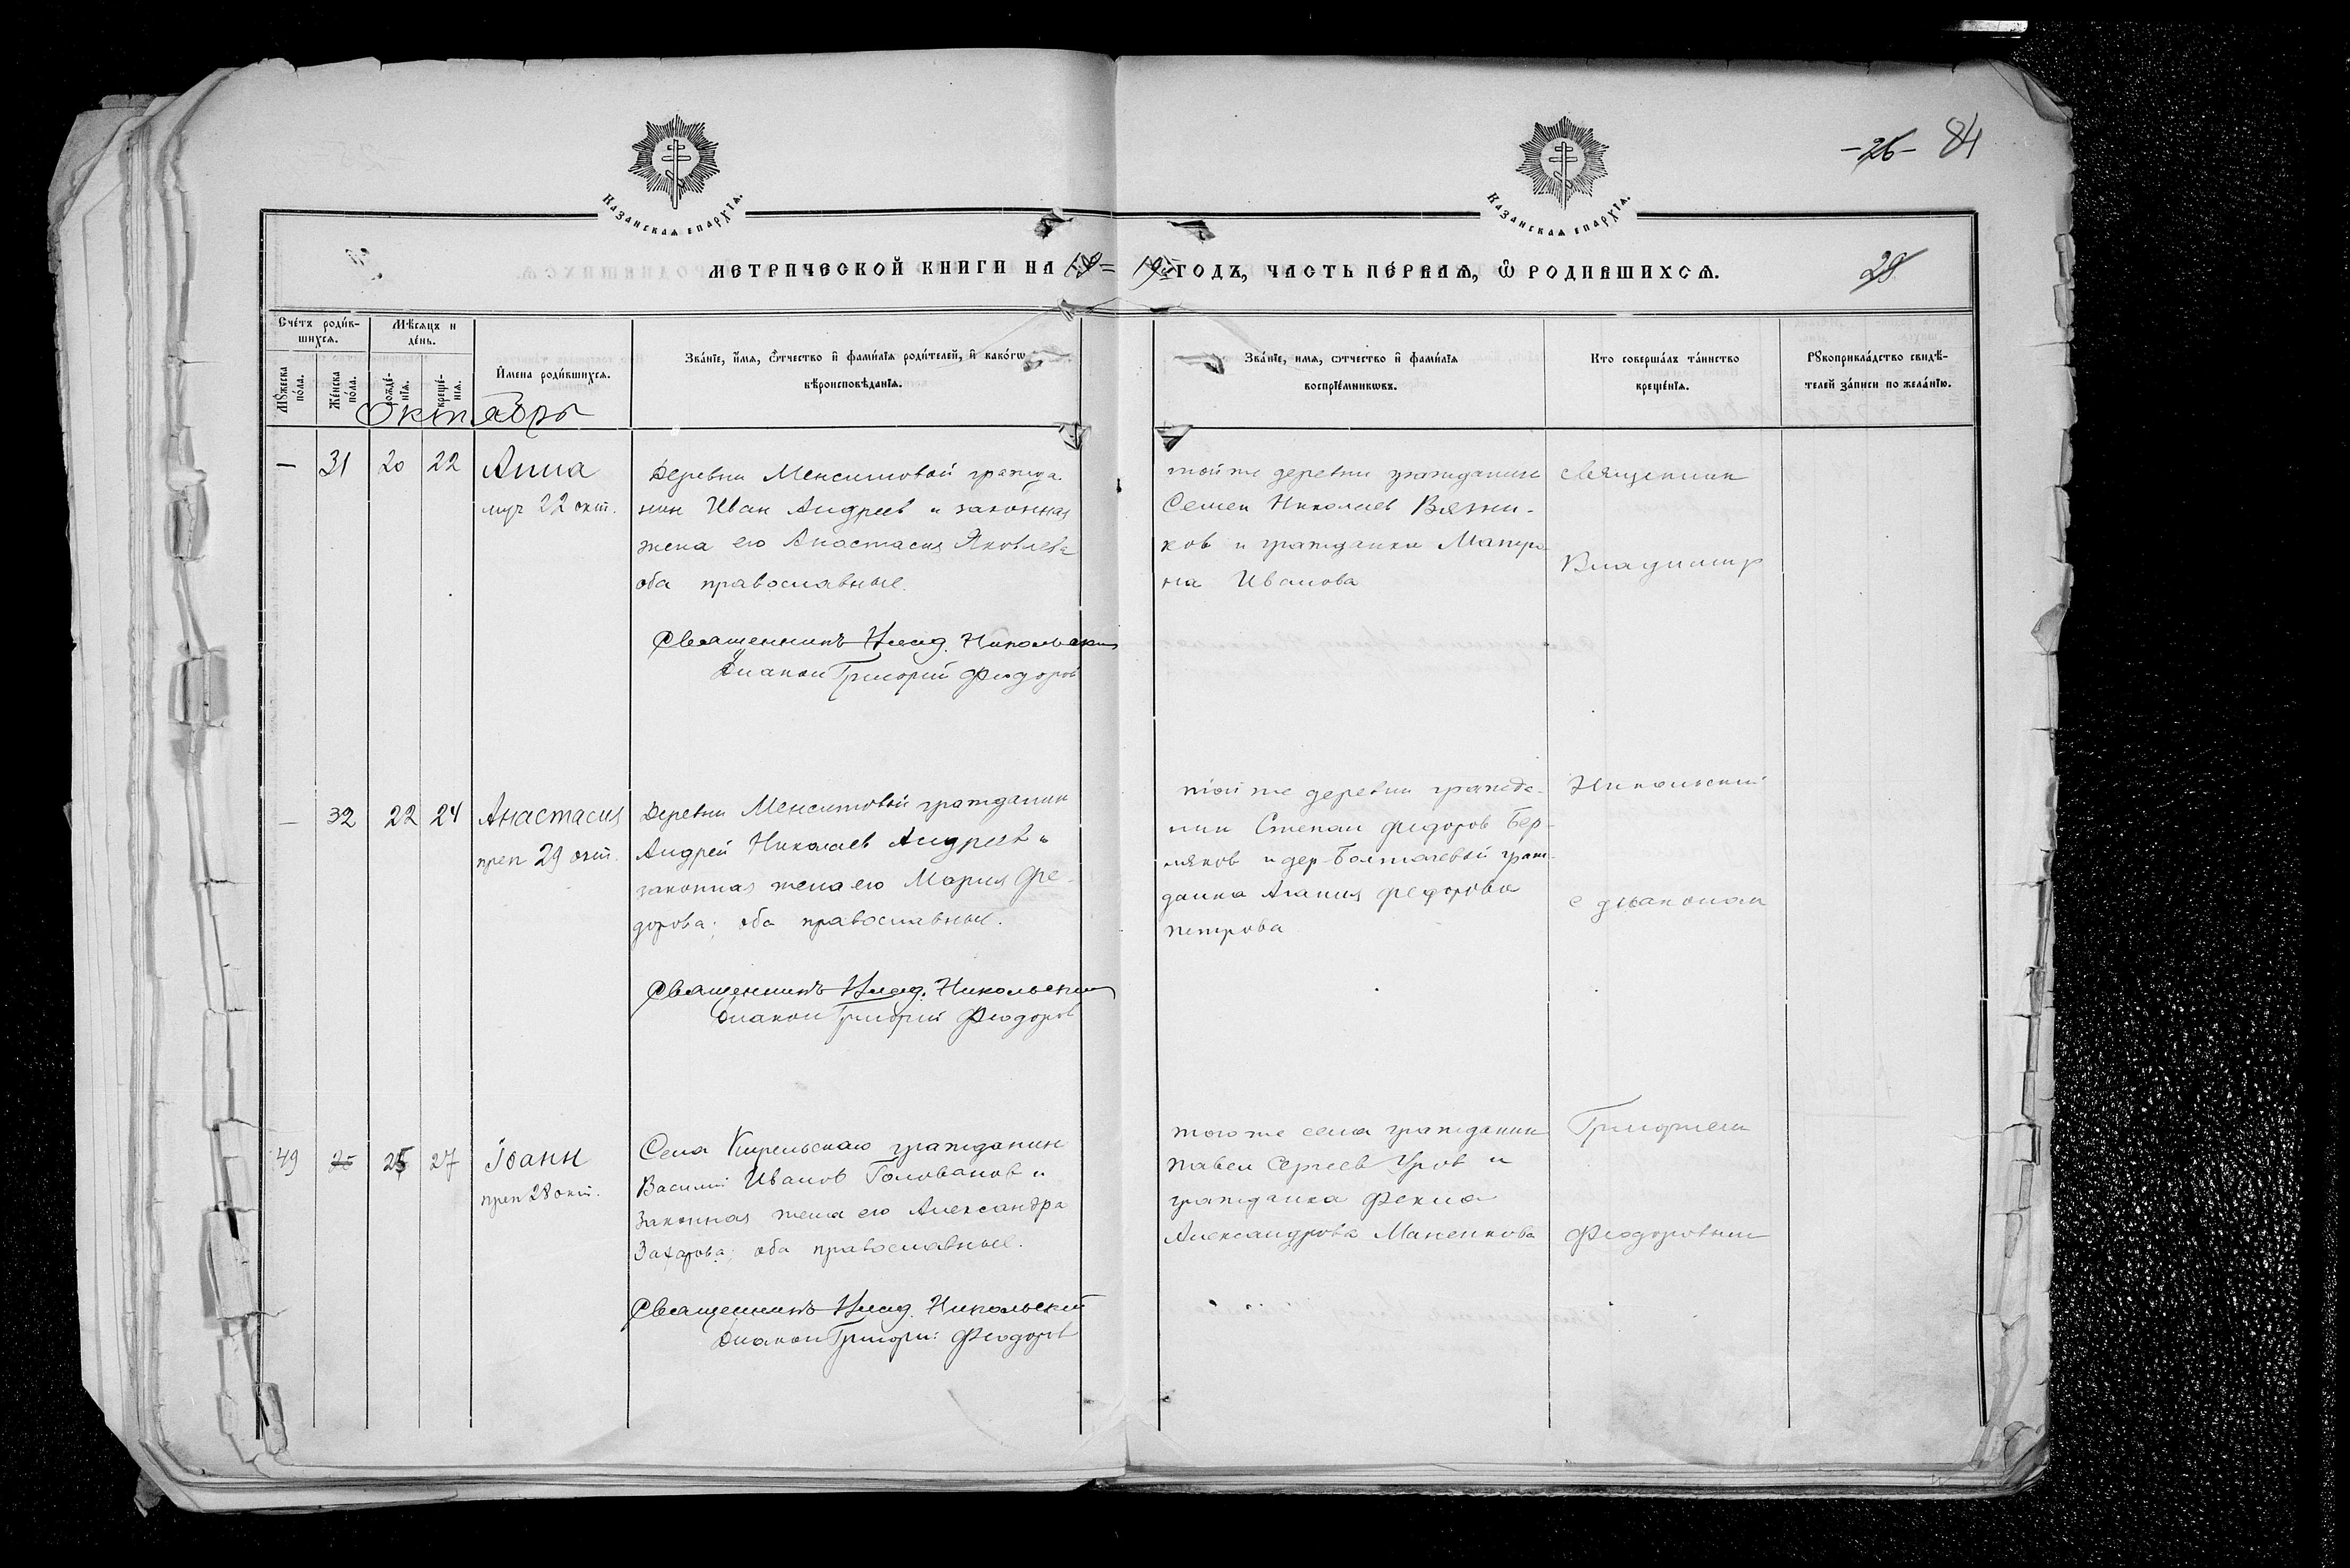 -26- 84
Казанская епархїя.
Казанская епархїя.
Метрической книги на 19
годъ, часть первая, ѿ родившихся.
29
Счетъ родившихся.
Мѣсяцъ и день.
Мужеска пола.
Женска пола.
рождения.
крещения.
Имена родившихся.
Званїе, имя, ѿчество и фамилїя родителей, и какогѡ
вѣроисповѣданїя.
Званїе, имя, ѿчество и фамилїя
воспрїемниковъ.
Кто совершалъ таинство
крещенїя.
Рукоприкладство свидѣ-
телей записи по желанїю.
Октябрь
— 31 20 22 Анна
муч 22 окт.
Деревни Менситовой гражда
нин Иван Андреев и законная
жена его Анастасия Яковлева
оба православные.
Священникъ Влад. Никольский
Диакон Григорий Феодоров
той же деревни гражданин
Семен Николаев Вязни-
ков и гражданка Матро
на Иванова
Священник
Владимир
— 32 22 24 Анастасия
преп 29 окт.
Деревни Менситовой гражданин
Андрей Николаев Андреев и
законная жена его Мария Фе-
дорова; оба православные.
Священникъ Влад. Никольский
Диакон Григорий Феодоров
той же деревни гражда-
нин Степан Федоров Бер-
ляков и дер. Болтачевой граж-
данка Агапия Федорова
Петрова
Никольский
с диаконом
49 25 27 Iоанн
преп 28 окт.
Села Кирельскаго гражданин
Василий Иванов Голованов и
законная жена его Александра
Захарова; оба православные.
Священникъ Влад. Никольский
Диакон Григорий Феодоров
того же села гражданин
Павел Сергеев Уров и
гражданка Фекла
Александрова Маненкова
Григорием
Феодоровым